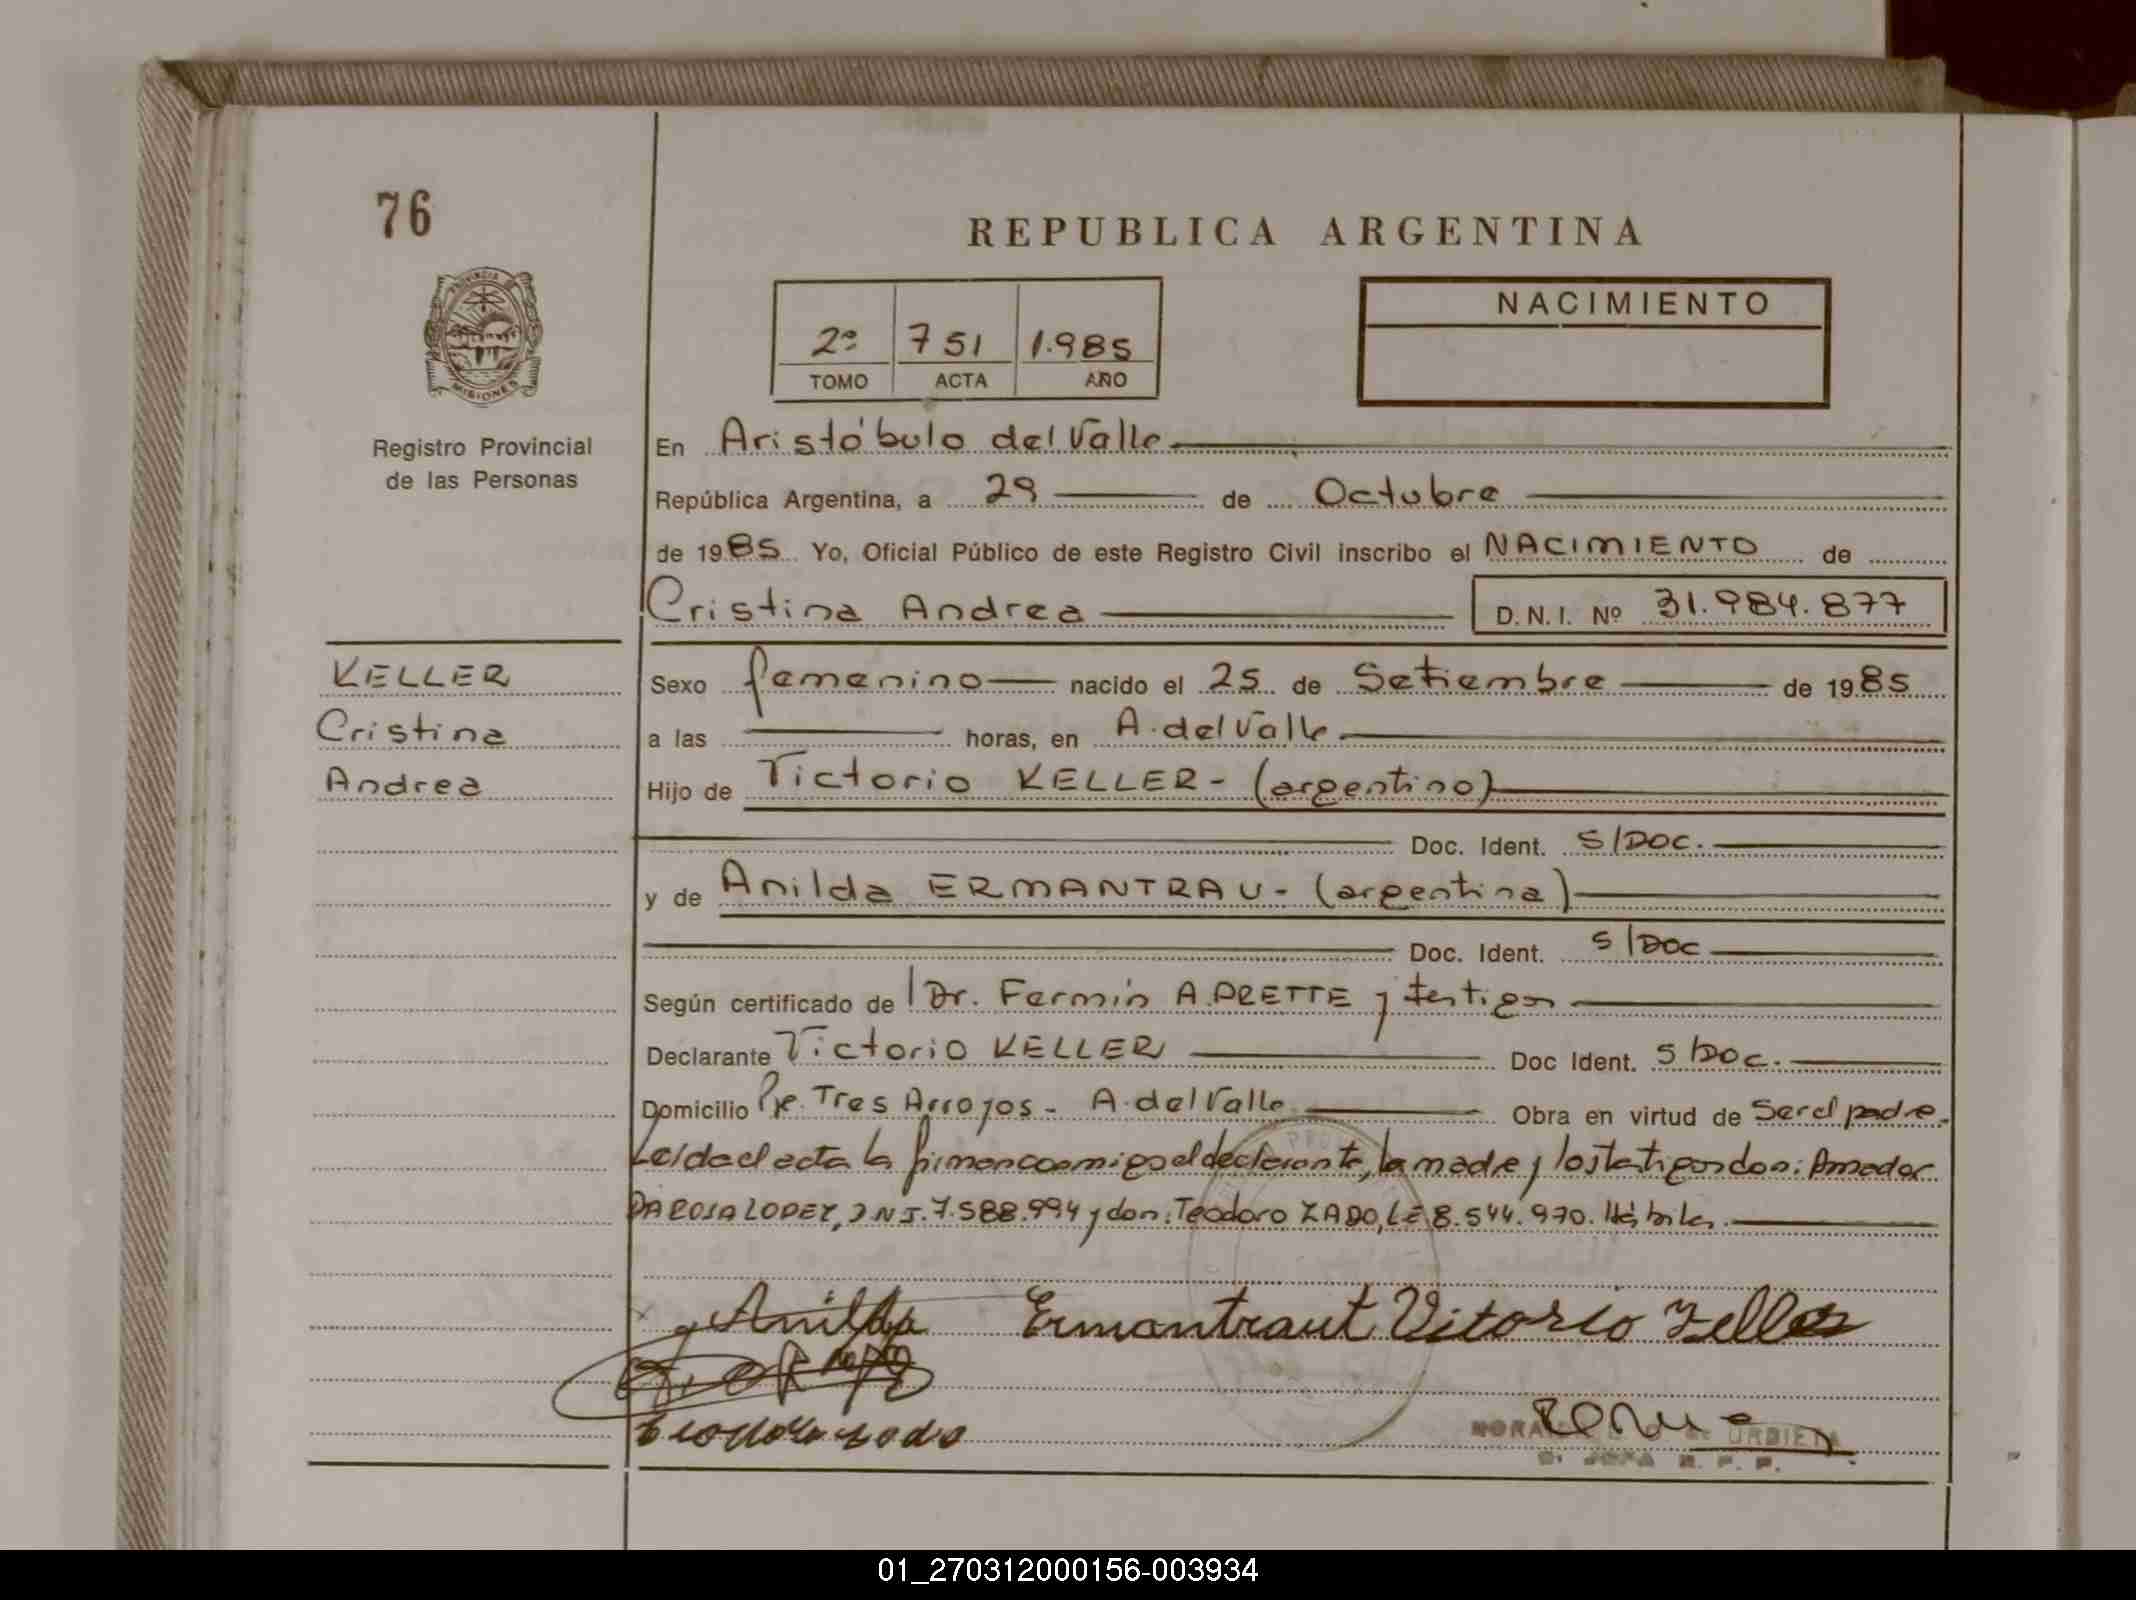 76
REPUBLICA ARGENTINA
PROVINCIA DE
MISIONES
Registro Provincial
de las Personas
2º 751 1.985
TOMO ACTA AÑO
NACIMIENTO
En Aristóbulo del Valle
República Argentina, a 29 de Octubre
de 1985 Yo, Oficial Público de este Registro Civil inscribo el NACIMIENTO de
Cristina Andrea D.N.I. Nº 31.984.877
KELLER
Cristina
Andrea
Sexo femenino nacido el 25 de Setiembre de 1985
a las horas, en A. del Valle
Hijo de Victorio KELLER - (argentino)
Doc. Ident. S/DOC.
y de Anilda ERMANTRAU - (argentina)
Doc. Ident. S/DOC
Según certificado de Dr. Fermín A. PRETTE y testigos
Declarante Victorio KELLER Doc Ident. S/DOC.
Domicilio Pje. Tres Arroyos - A. del Valle Obra en virtud de Ser el padre.
Leída el acta la firman conmigo el declarante, la madre y los testigos don: Amador
DA ROSA LOPEZ, DNI. 7.588.994 y don: Teodoro ZADO, LE 8.544.970. Hábiles.
Anilda Ermantraut Vitorio
Teodoro zado
URBIETA
R. P. P.
01_270312000156-003934